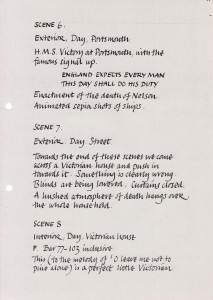 SCENE 6.
Exterior, Day, Portsmouth
H.M.S. Victory at Portsmouth, with the
famous signal up.
ENGLAND EXPECTS EVERY MAN
THIS DAY SHALL DO HIS DUTY
Enactment of the death of Nelson.
Animated sepia shots of ships.
SCENE 7.
Exterior. Day. Street
Towards the end of these scenes we come
across a Victorian house and push in
towards it. Something is clearly wrong.
Blinds are being lowered. Curtains closed.
A hushed atmosphere of death hangs over
the whole household.
SCENE 8
Interior, Day, Victorian house
P. Bar 77-103 inclusive
This (to the melody of 'O leave me not to
pine alone) is a perfect little Victorian